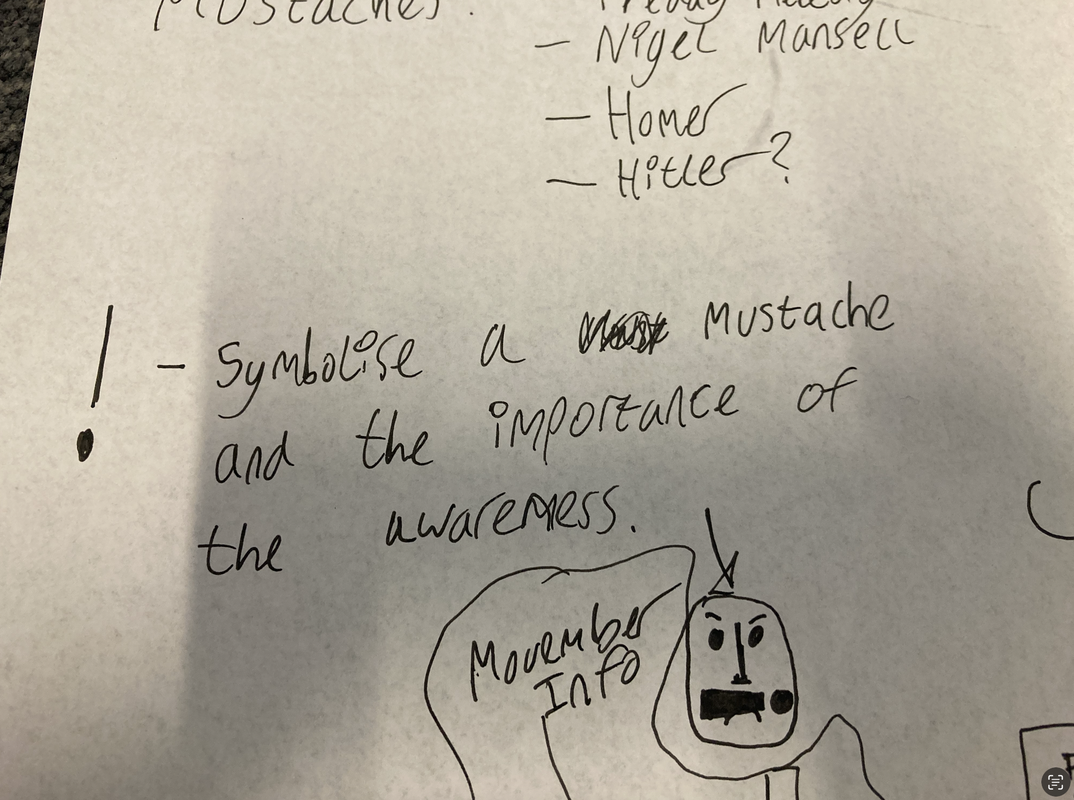 Mustaches:
- Nigel Mansell
- Homer
- Hitler?
! - Symbolise a Mustache
and the importance of
the awareness.
Movember
Info